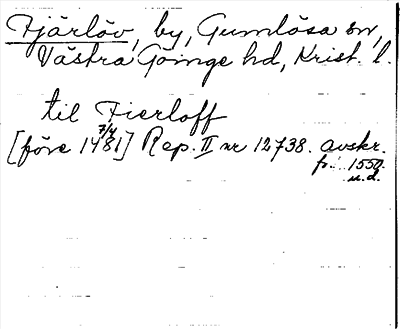 Fjärlöv, by, Gumlösa sn,
Västra Göinge hd, Krist. l.
til Fierloff
[före 7/4 1481] Rep. II nr 12738. avskr.
fr. 1550.
u.d.